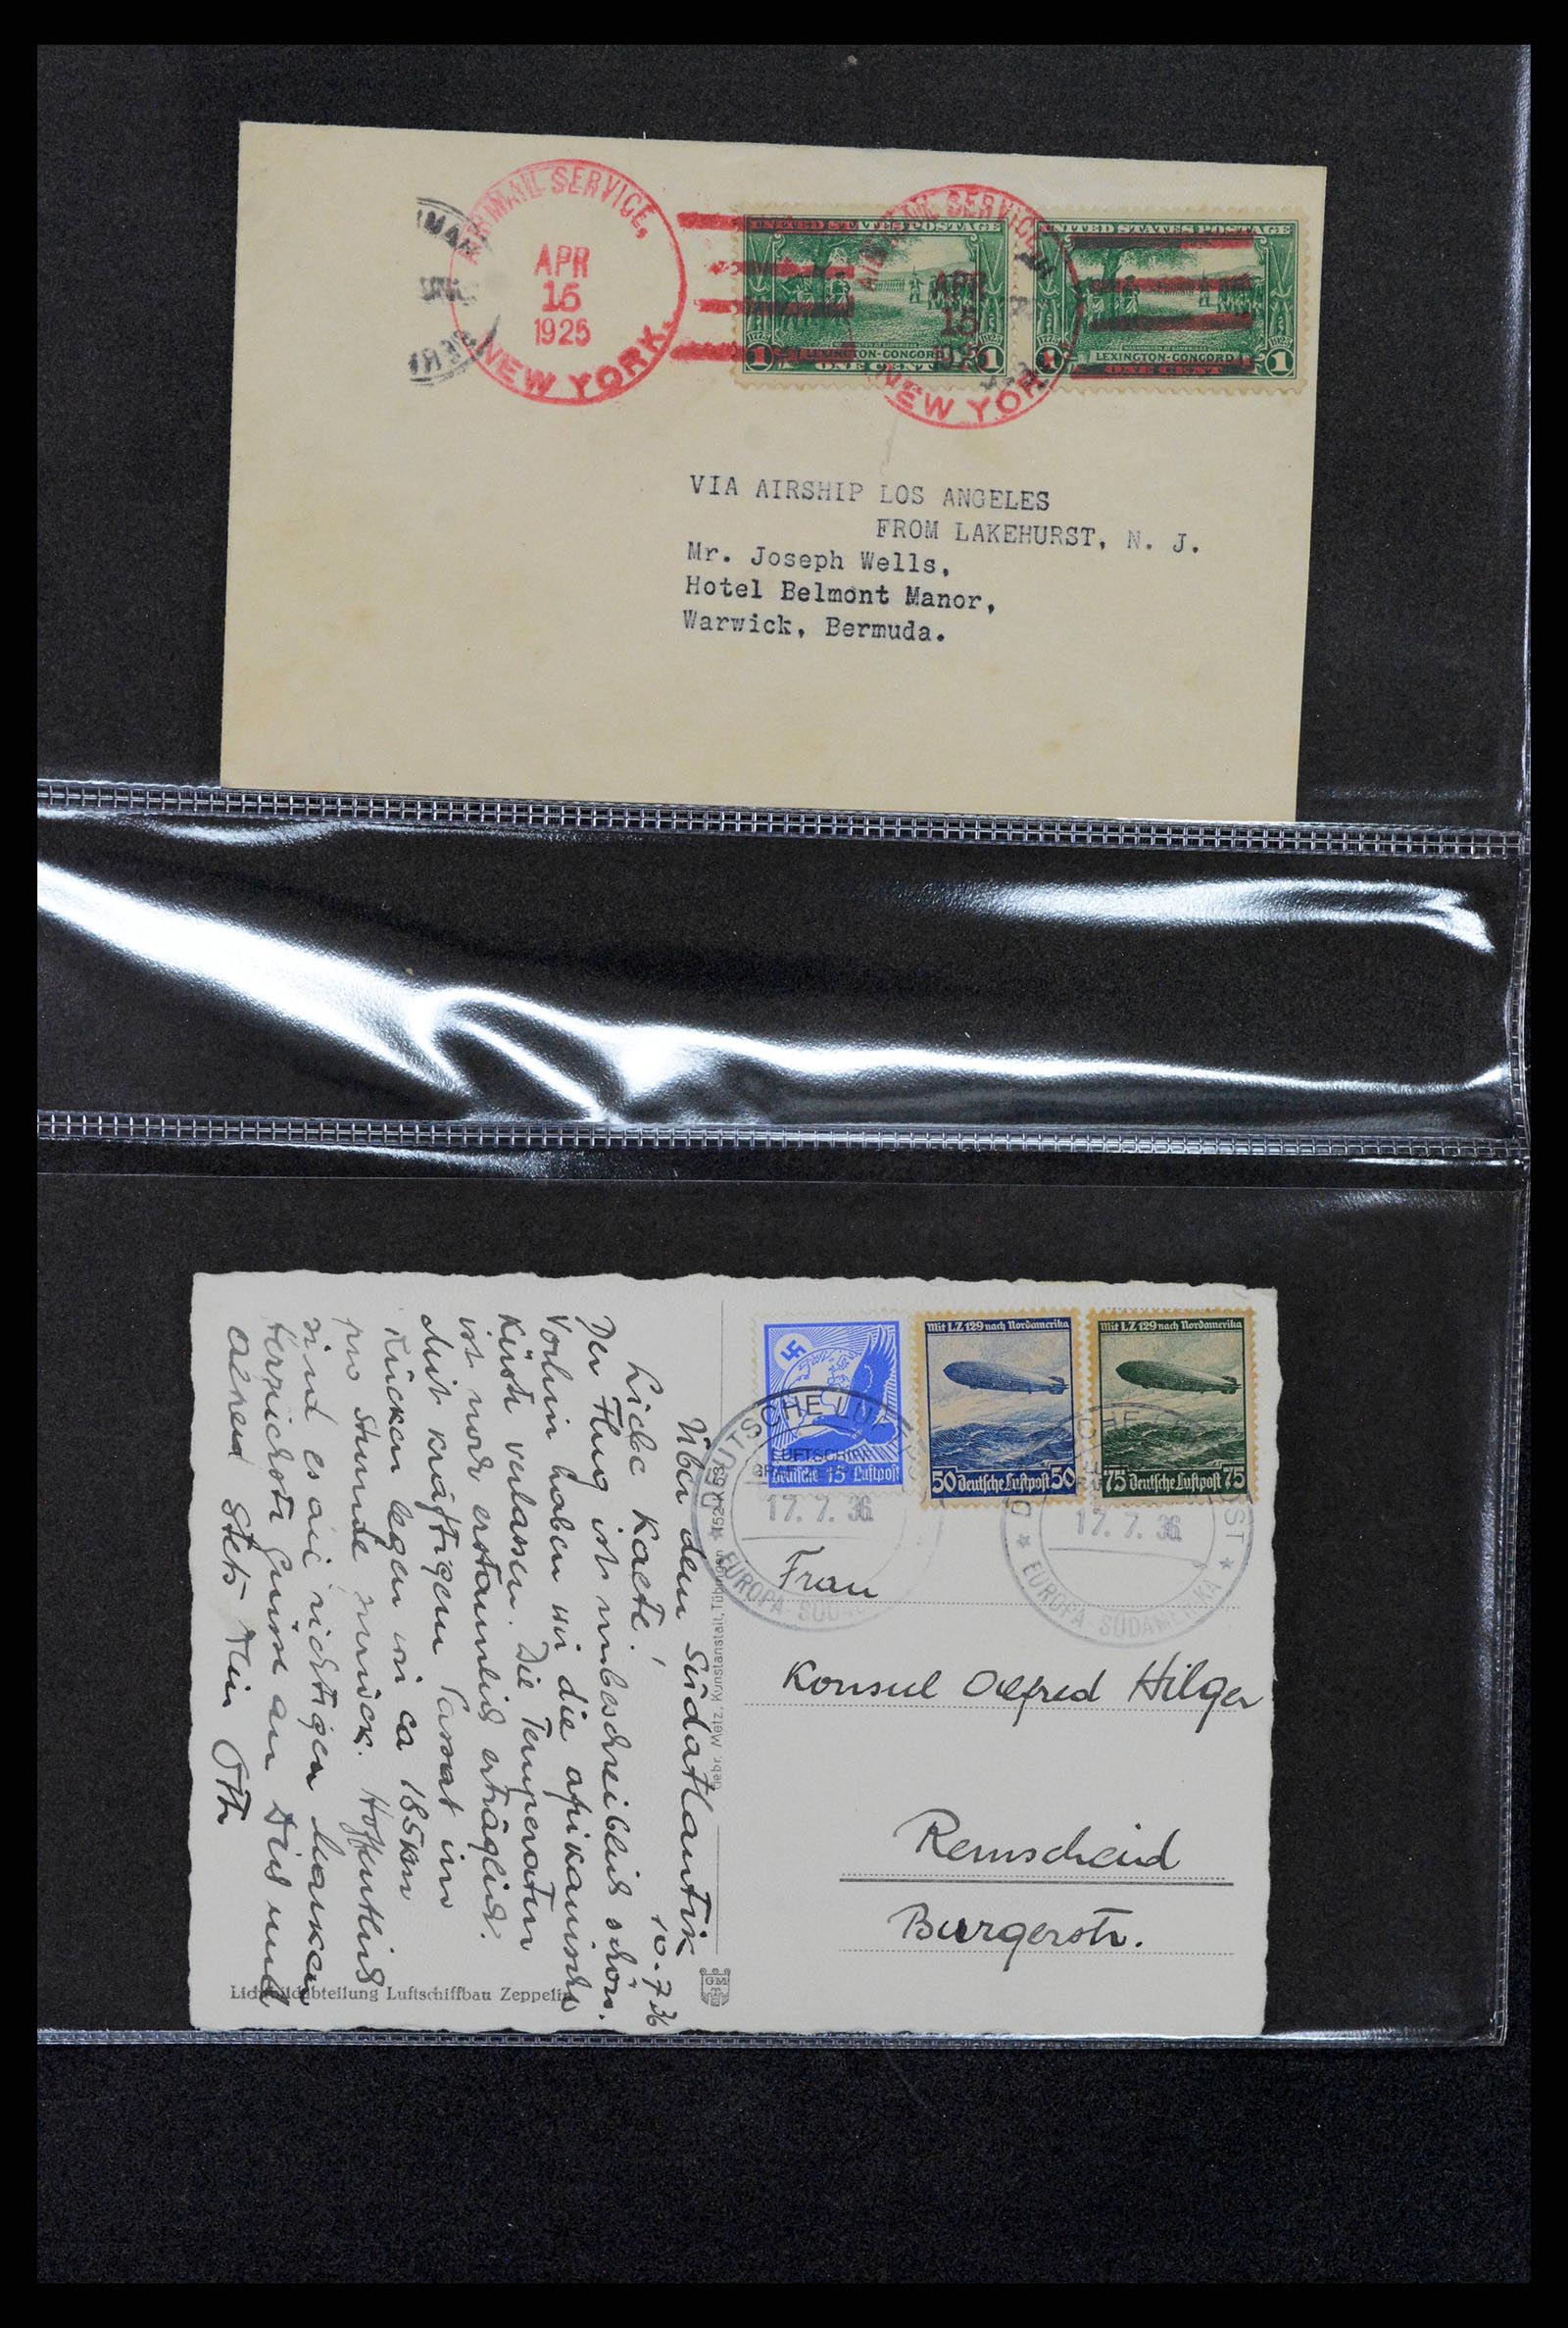 AIR MAIL SERVICE,
APR
15
1925
NEW YORK.
AIR MAIL SERVICE
APR
15
1925
NEW YORK
UNITED STATES POSTAGE
1 LEXINGTON-CONCORD 1
ONE CENT
UNITED STATES POSTAGE
1 LEXINGTON-CONCORD 1
ONE CENT
VIA AIRSHIP LOS ANGELES
FROM LAKEHURST, N. J.
Mr. Joseph Wells,
Hotel Belmont Manor,
Warwick, Bermuda.
Über dem Südatlantik
10.7.36
Liebe Kaete!
Der Flug ist unbeschreiblich schön.
Vorhin haben wir die afrikanische
Küste verlassen. Die Temperatur
ist noch erstaunlich erträglich.
Mit kräftigem Passat im
Rücken legen wir ca 185 km
pro Stunde zurück. Hoffentlich
sind es die richtigen Marken
Herzlichste Grüsse an Dich und
Alfred Stets Dein
Lichtbildabteilung Luftschiffbau Zeppelin
Gebr. Metz, Kunstanstalt, Tübingen
GM
Deutsche 15 Luftpost
Mit LZ 129 nach Nordamerika
50 Deutsche Luftpost 50
Mit LZ 129 nach Nordamerika
75 Deutsche Luftpost 75
DEUTSCHE LUFTPOST
LUFTSCHIFF
17.7.36
EUROPA-SÜDAMERIKA
17.7.36
EUROPA-SÜDAMERIKA
Frau
Konsul Alfred Hilger
Remscheid
Burgerstr.